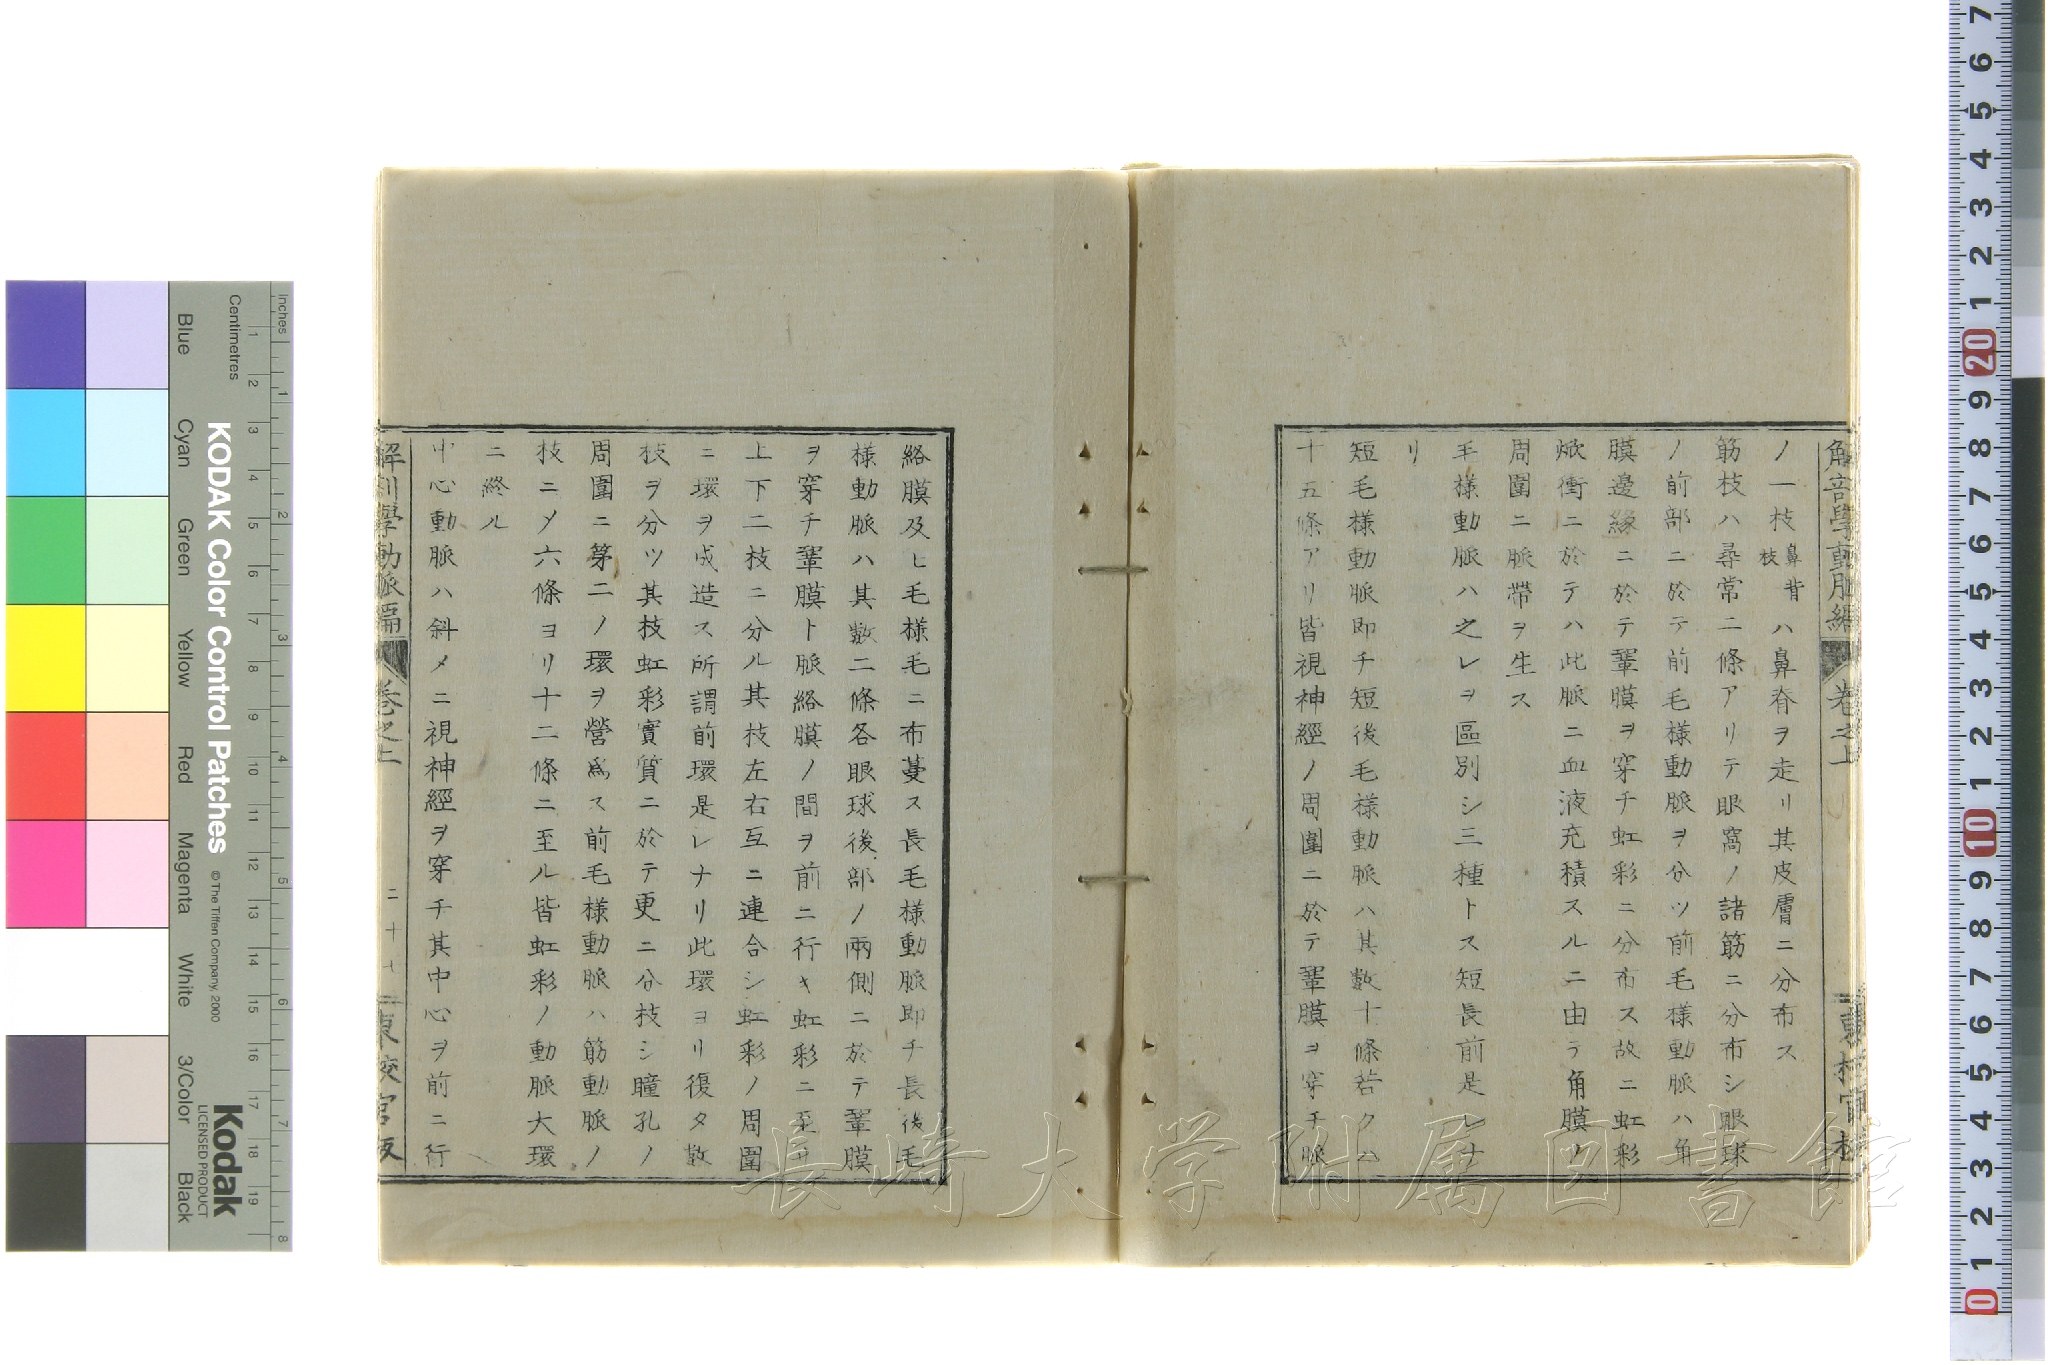 解剖學動脈編 卷之上
東校官板
ノ一枝鼻背枝ハ鼻脊ヲ走リ其皮膚ニ分布ス
筋枝ハ尋常二條アリテ眼窩ノ諸筋ニ分布シ眼球
ノ前部ニ於テ前毛様動脈ヲ分ツ前毛様動脈ハ角
膜邊緣ニ於テ鞏膜ヲ穿チ虹彩ニ分布ス故ニ虹彩
焮衝ニ於テハ此脈ニ血液充積スルニ由テ角膜ノ
周圍ニ脈帶ヲ生ス
毛様動脈ハ之レヲ區別シ三種トス短長前是レナ
リ
短毛様動脈即チ短後毛様動脈ハ其數十條若クハ
十五條アリ皆視神經ノ周圍ニ於テ鞏膜ヲ穿チ脈
絡膜及ヒ毛様毛ニ布蔓ス長毛様動脈即チ長後毛
様動脈ハ其數二條各眼球後部ノ兩側ニ於テ鞏膜
ヲ穿チ鞏膜ト脈絡膜ノ間ヲ前ニ行キ虹彩ニ至リ
上下二枝ニ分ル其枝左右互ニ連合シ虹彩ノ周圍
ニ環ヲ成造ス所謂前環是レナリ此環ヨリ復タ數
枝ヲ分ツ其枝虹彩實質ニ於テ更ニ分枝シ瞳孔ノ
周圍ニ第二ノ環ヲ營爲ス前毛様動脈ハ筋動脈ノ
枝ニメ六條ヨリ十二條ニ至ル皆虹彩ノ動脈大環
ニ終ル
中心動脈ハ斜メニ視神經ヲ穿チ其中心ヲ前ニ行
解剖學動脈編 卷之上
東校官板
長崎大学附属図書館
KODAK Color Control Patches
© The Tiffen Company, 2000
Kodak
LICENSED PRODUCT
Inches
Centimetres
Blue Cyan Green Yellow Red Magenta White 3/Color Black